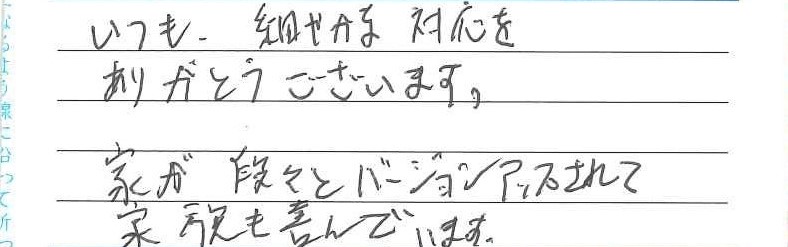 いつも、細やかな対応を
ありがとうございます。
家が段々とバージョンアップされて
家族も喜んでいます。